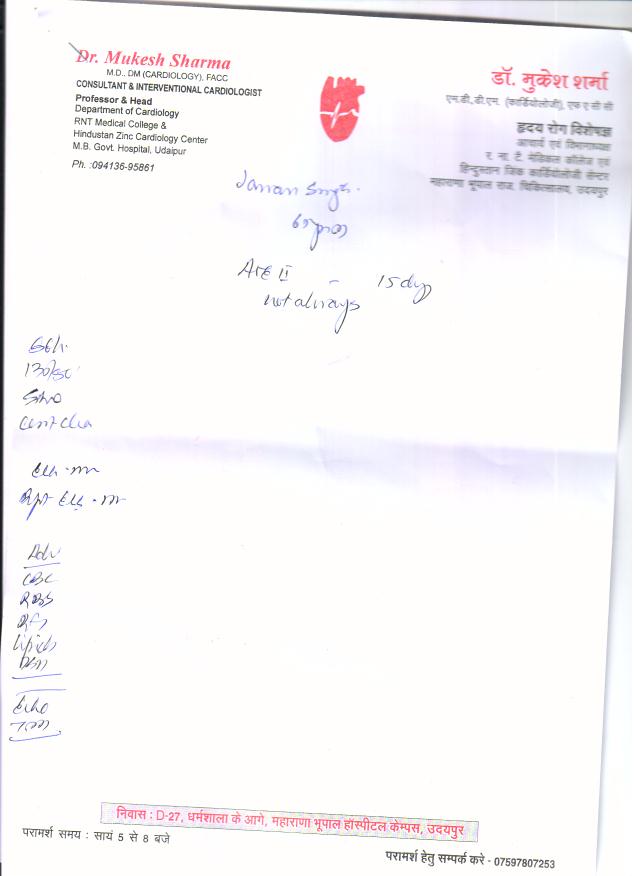 Dr. Mukesh Sharma
M.D., DM (CARDIOLOGY), FACC
CONSULTANT & INTERVENTIONAL CARDIOLOGIST
Professor & Head
Department of Cardiology
RNT Medical College &
Hindustan Zinc Cardiology Center
M.B. Govt. Hospital, Udaipur
Ph. :094136-95861
डॉ. मुकेश शर्मा
एम.डी.,डी.एम. (कार्डियोलोजी), एफ ए सी सी
हृदय रोग विशेषज्ञ
आचार्य एवं विभागाध्यक्ष
र. ना. टे. मेडिकल कॉलेज एवं
हिन्दुस्तान जिंक कार्डियोलोजी सेन्टर
महाराणा भूपाल राज. चिकित्सालय, उदयपुर
Singh
II - 15 day
not always
130/80
Adv
CBC
RBS
RFT
Lipids
Echo
निवास : D-27, धर्मशाला के आगे, महाराणा भूपाल हॉस्पीटल केम्पस, उदयपुर
परामर्श समय : सायं 5 से 8 बजे
परामर्श हेतु सम्पर्क करे - 07597807253